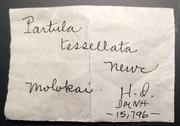 Partula
tessellata
Newc
Molokai
H. I.
DMNH
-15,796-